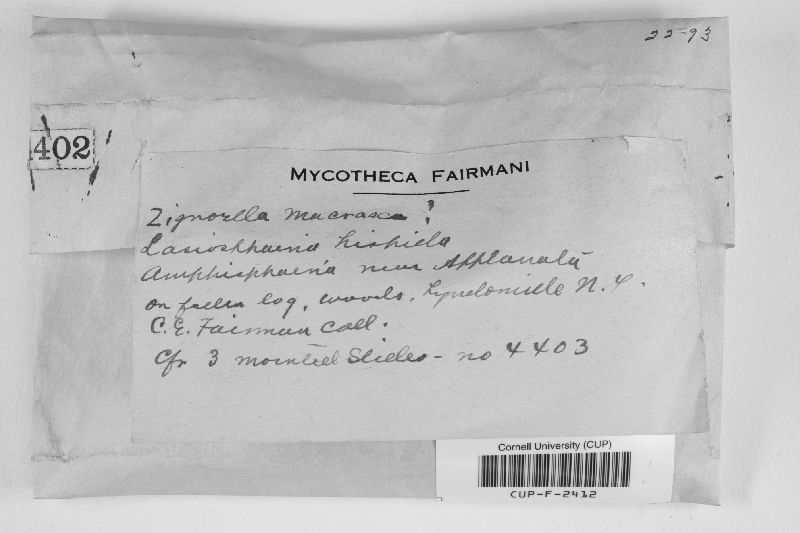 22-93
402
MYCOTHECA FAIRMANI
Zignoella macrasca ?
Lasiosphaeria hispida
Amphisphaeria near Applanata
on fallen log, woods, Lyndonville N.Y.
C.E. Fairman Coll.
Cfr 3 mounted Slides - no 4403
Cornell University (CUP)
CUP-F-2412